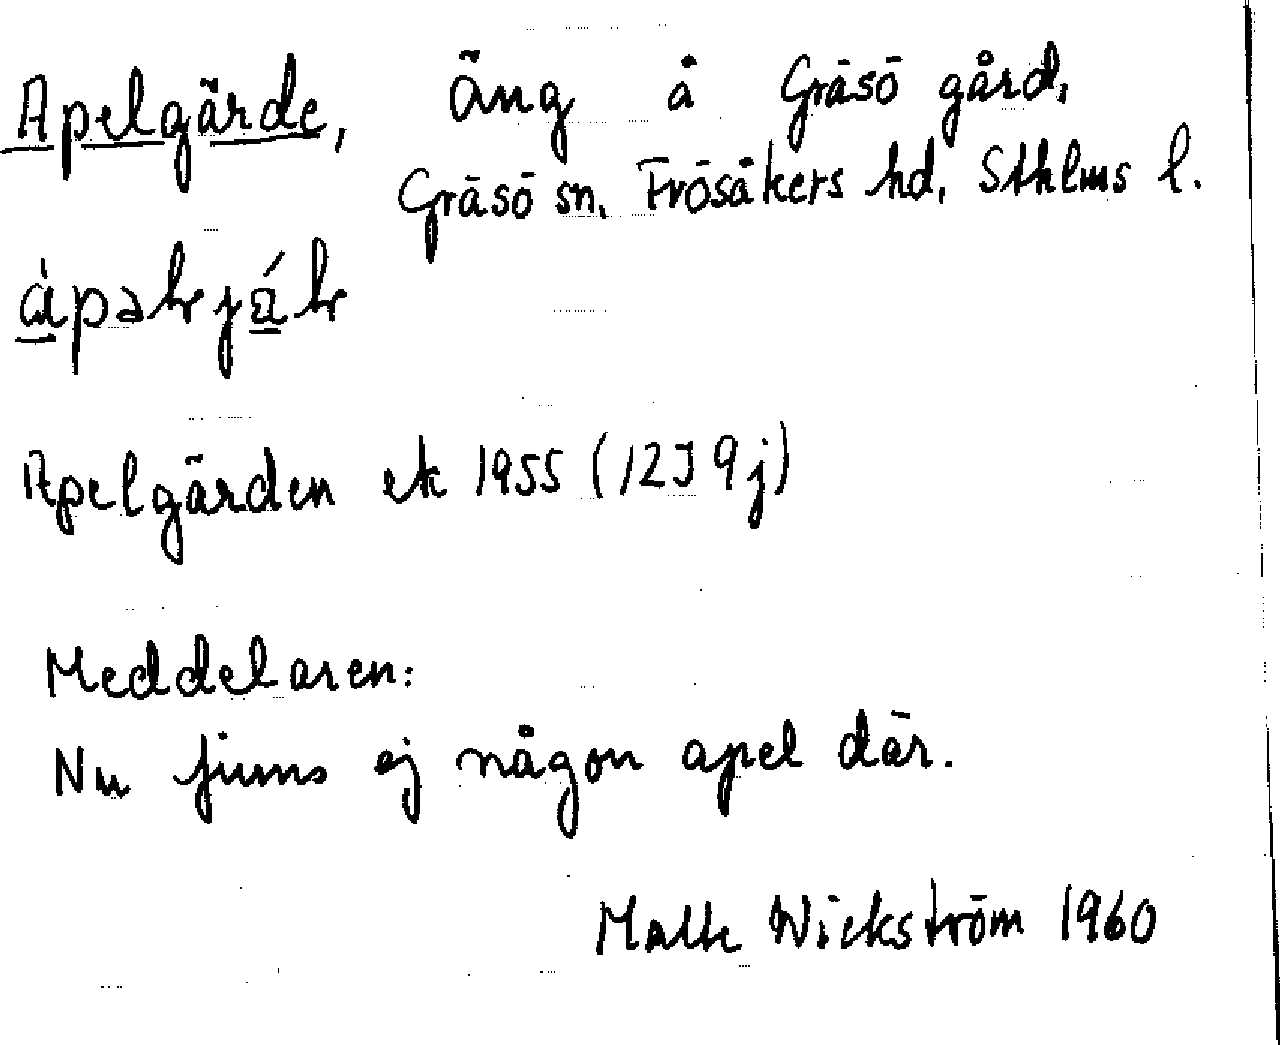 Apelgärde, äng å Gräsö gård,
Gräsö sn, Frösåkers hd, Sthlms l.
Apelgärden ek 1955 (12J 9j)
Meddelaren:
Nu finns ej någon apel där.
Wickström 1960